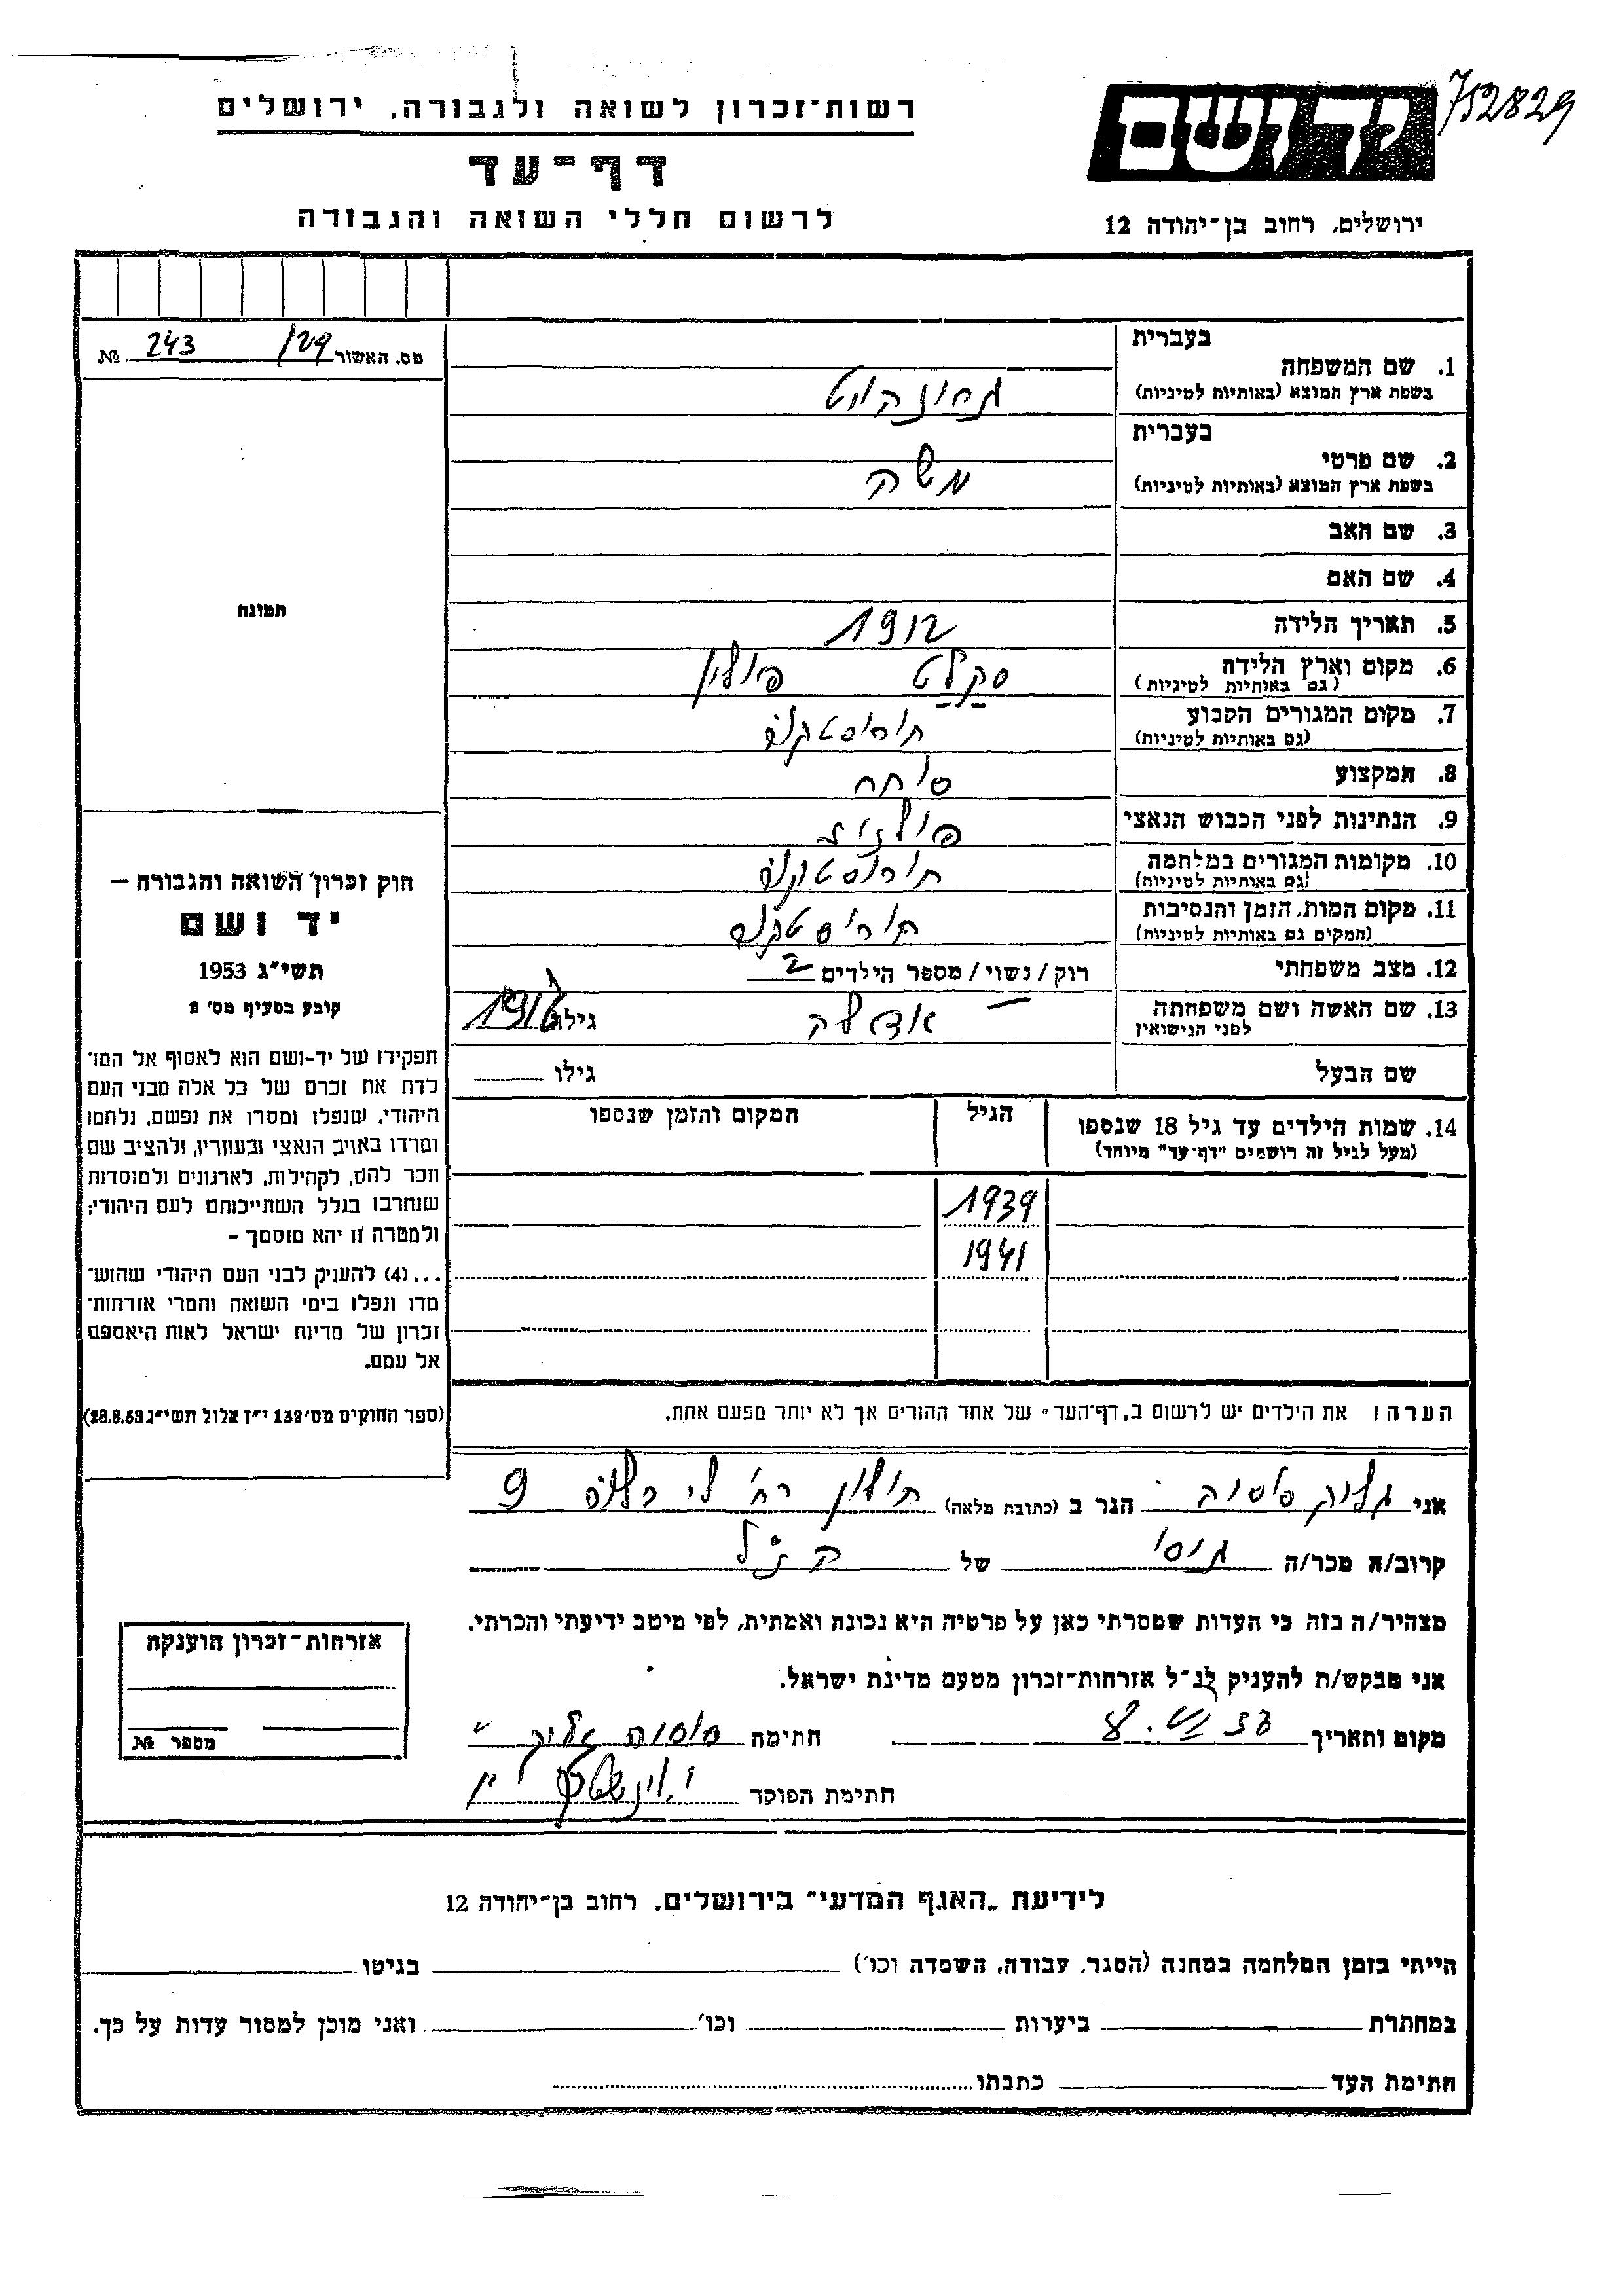 752829
יד ושם
רשות־זכרון לשואה ולגבורה, ירושלים
דף־עד
לרשום חללי השואה והגבורה
ירושלים, רחוב בן־יהודה 12
מס. האשור 129 243 №
בעברית
1. שם המשפחה
בשפת ארץ המוצא (באותיות לטיניות)
בעברית
2. שם פרטי
בשפת ארץ המוצא (באותיות לטיניות)
משה
3. שם האב
4. שם האם
5. תאריך הלידה 1912
6. מקום וארץ הלידה סקלט פולין
(גם באותיות לטיניות)
7. מקום המגורים הקבוע
(גם באותיות לטיניות)
8. המקצוע סוחר
9. הנתינות לפני הכבוש הנאצי פולנית
10. מקומות המגורים במלחמה
(גם באותיות לטיניות)
11. מקום המות, הזמן והנסיבות
(המקום גם באותיות לטיניות)
12. מצב משפחתי רוק / נשוי / מספר הילדים 2
13. שם האשה ושם משפחתה
לפני הנישואין
אדלה גילה
שם הבעל גילו
14. שמות הילדים עד גיל 18 שנספו
(מעל לגיל זה רושמים "דף־עד" מיוחד)
הגיל
המקום והזמן שנספו
1939
1941
הערה: את הילדים יש לרשום ב„דף־העד" של אחד ההורים אך לא יותר מפעם אחת.
תמונה
חוק זכרון השואה והגבורה —
יד ושם
תשי"ג 1953
קובע בסעיף מס' 2
תפקידו של יד-ושם הוא לאסוף אל המו־
לדת את זכרם של כל אלה מבני העם
היהודי, שנפלו ומסרו את נפשם, נלחמו
ומרדו באויב הנאצי ובעוזריו, ולהציב שם
וזכר להם, לקהילות, לארגונים ולמוסדות
שנחרבו בגלל השתייכותם לעם היהודי;
ולמטרה זו יהא מוסמך —
...(4) להעניק לבני העם היהודי שהוש־
מדו ונפלו בימי השואה והמרי אזרחות־
זכרון של מדינת ישראל לאות היאספם
אל עמם.
(ספר החוקים מס' 132 י"ז אלול תשי"ג 28.8.53)
אני הגר ב (כתובת מלאה) חולון רח' 9
קרוב/ה מכר/ה גיסו של הנ"ל
מצהיר/ה בזה כי העדות שמסרתי כאן על פרטיה היא נכונה ואמתית, לפי מיטב ידיעתי והכרתי.
אני מבקש/ת להעניק לנ"ל אזרחות־זכרון מטעם מדינת ישראל.
מקום ותאריך חתימה
חתימת הפוקד
אזרחות־זכרון הוענקה
מספר №
לידיעת „האגף המדעי" בירושלים, רחוב בן־יהודה 12
הייתי בזמן המלחמה במחנה (הסגר, עבודה, השמדה וכו') בגיטו
במחתרת ביערות וכו' ואני מוכן למסור עדות על כך.
חתימת העד כתבתו